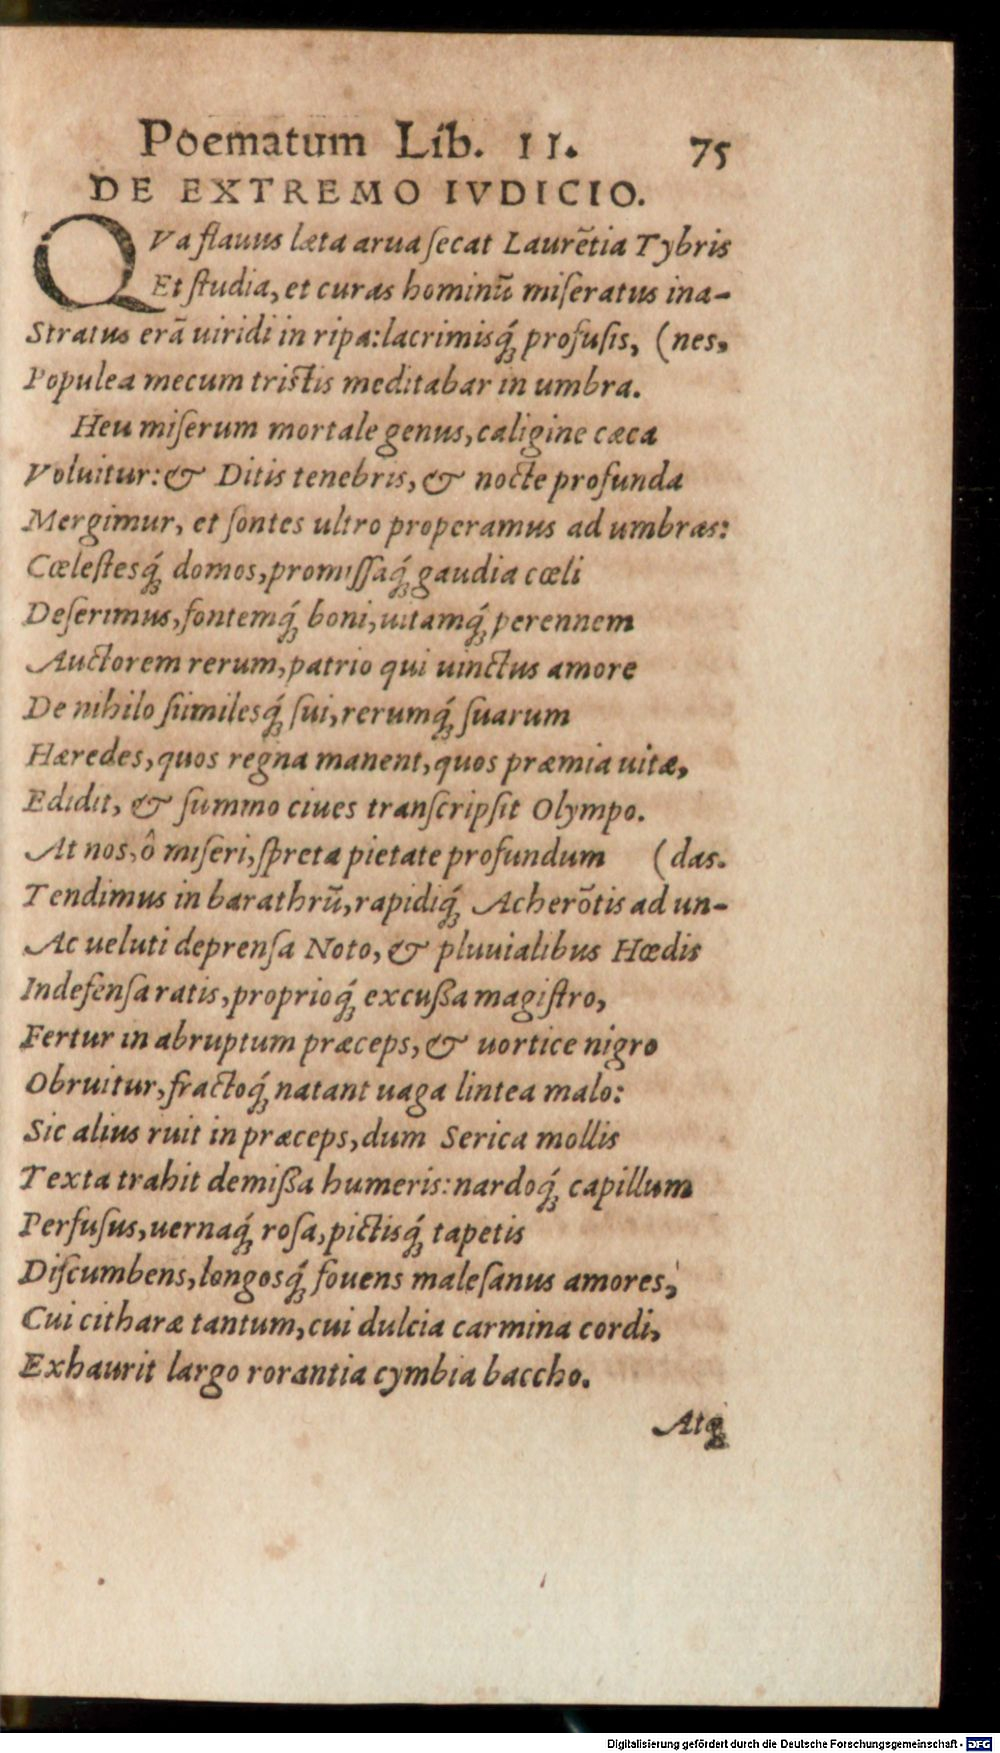 Poematum Lib. II. 75
DE EXTREMO IVDICIO.
QVa flauus læta arua ſecat Laurẽtia Tybris
Et ſtudia, et curas hominũ miſeratus ina-
Stratus erã uiridi in ripa: lacrimisq́ꝫ profuſis, (nes,
Populea mecum tristis meditabar in umbra.
Heu miſerum mortale genus, caligine cæca
Voluitur: & Ditis tenebris, & nocte profunda
Mergimur, et ſontes ultro properamus ad umbras:
Cœleſtesq́ꝫ domos, promiſſaq́ꝫ gaudia cœli
Deſerimus, fontemq́ꝫ boni, uitamq́ꝫ perennem
Auctorem rerum, patrio qui uinctus amore
De nihilo ſiimilesq́ꝫ ſui, rerumq́ꝫ ſuarum
Hæredes, quos regna manent, quos præmia uitæ,
Edidit, & ſummo ciues tranſcripſit Olympo.
At nos, ô miſeri, ſpreta pietate profundum (das.
Tendimus in barathrũ, rapidiq́ꝫ Acherõtis ad un-
Ac ueluti deprenſa Noto, & pluuialibus Hœdis
Indefenſa ratis, proprioq́ꝫ excußa magiſtro,
Fertur in abruptum præceps, & uortice nigro
Obruitur, fractoq́ꝫ natant uaga lintea malo:
Sic alius ruit in præceps, dum Serica mollis
Texta trahit demißa humeris: nardoq́ꝫ capillum
Perfuſus, uernaq́ꝫ roſa, pictisq́ꝫ tapetis
Diſcumbens, longosq́ꝫ fouens maleſanus amores,
Cui citharæ tantum, cui dulcia carmina cordi,
Exhaurit largo rorantia cymbia baccho.
Atqꝫ
Digitalisierung gefördert durch die Deutsche Forschungsgemeinschaft - DFG